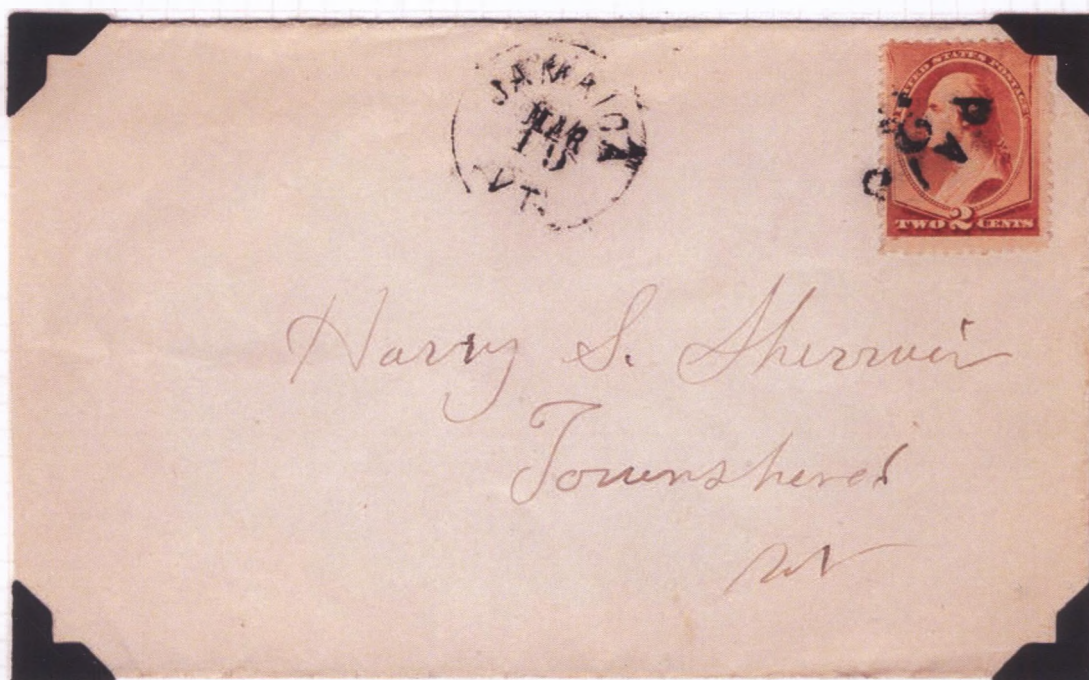 JAMAICA
MAR
VT.
UNITED STATES POSTAGE
TWO 2 CENTS
Harry S. Sherwin
Townshend
Vt